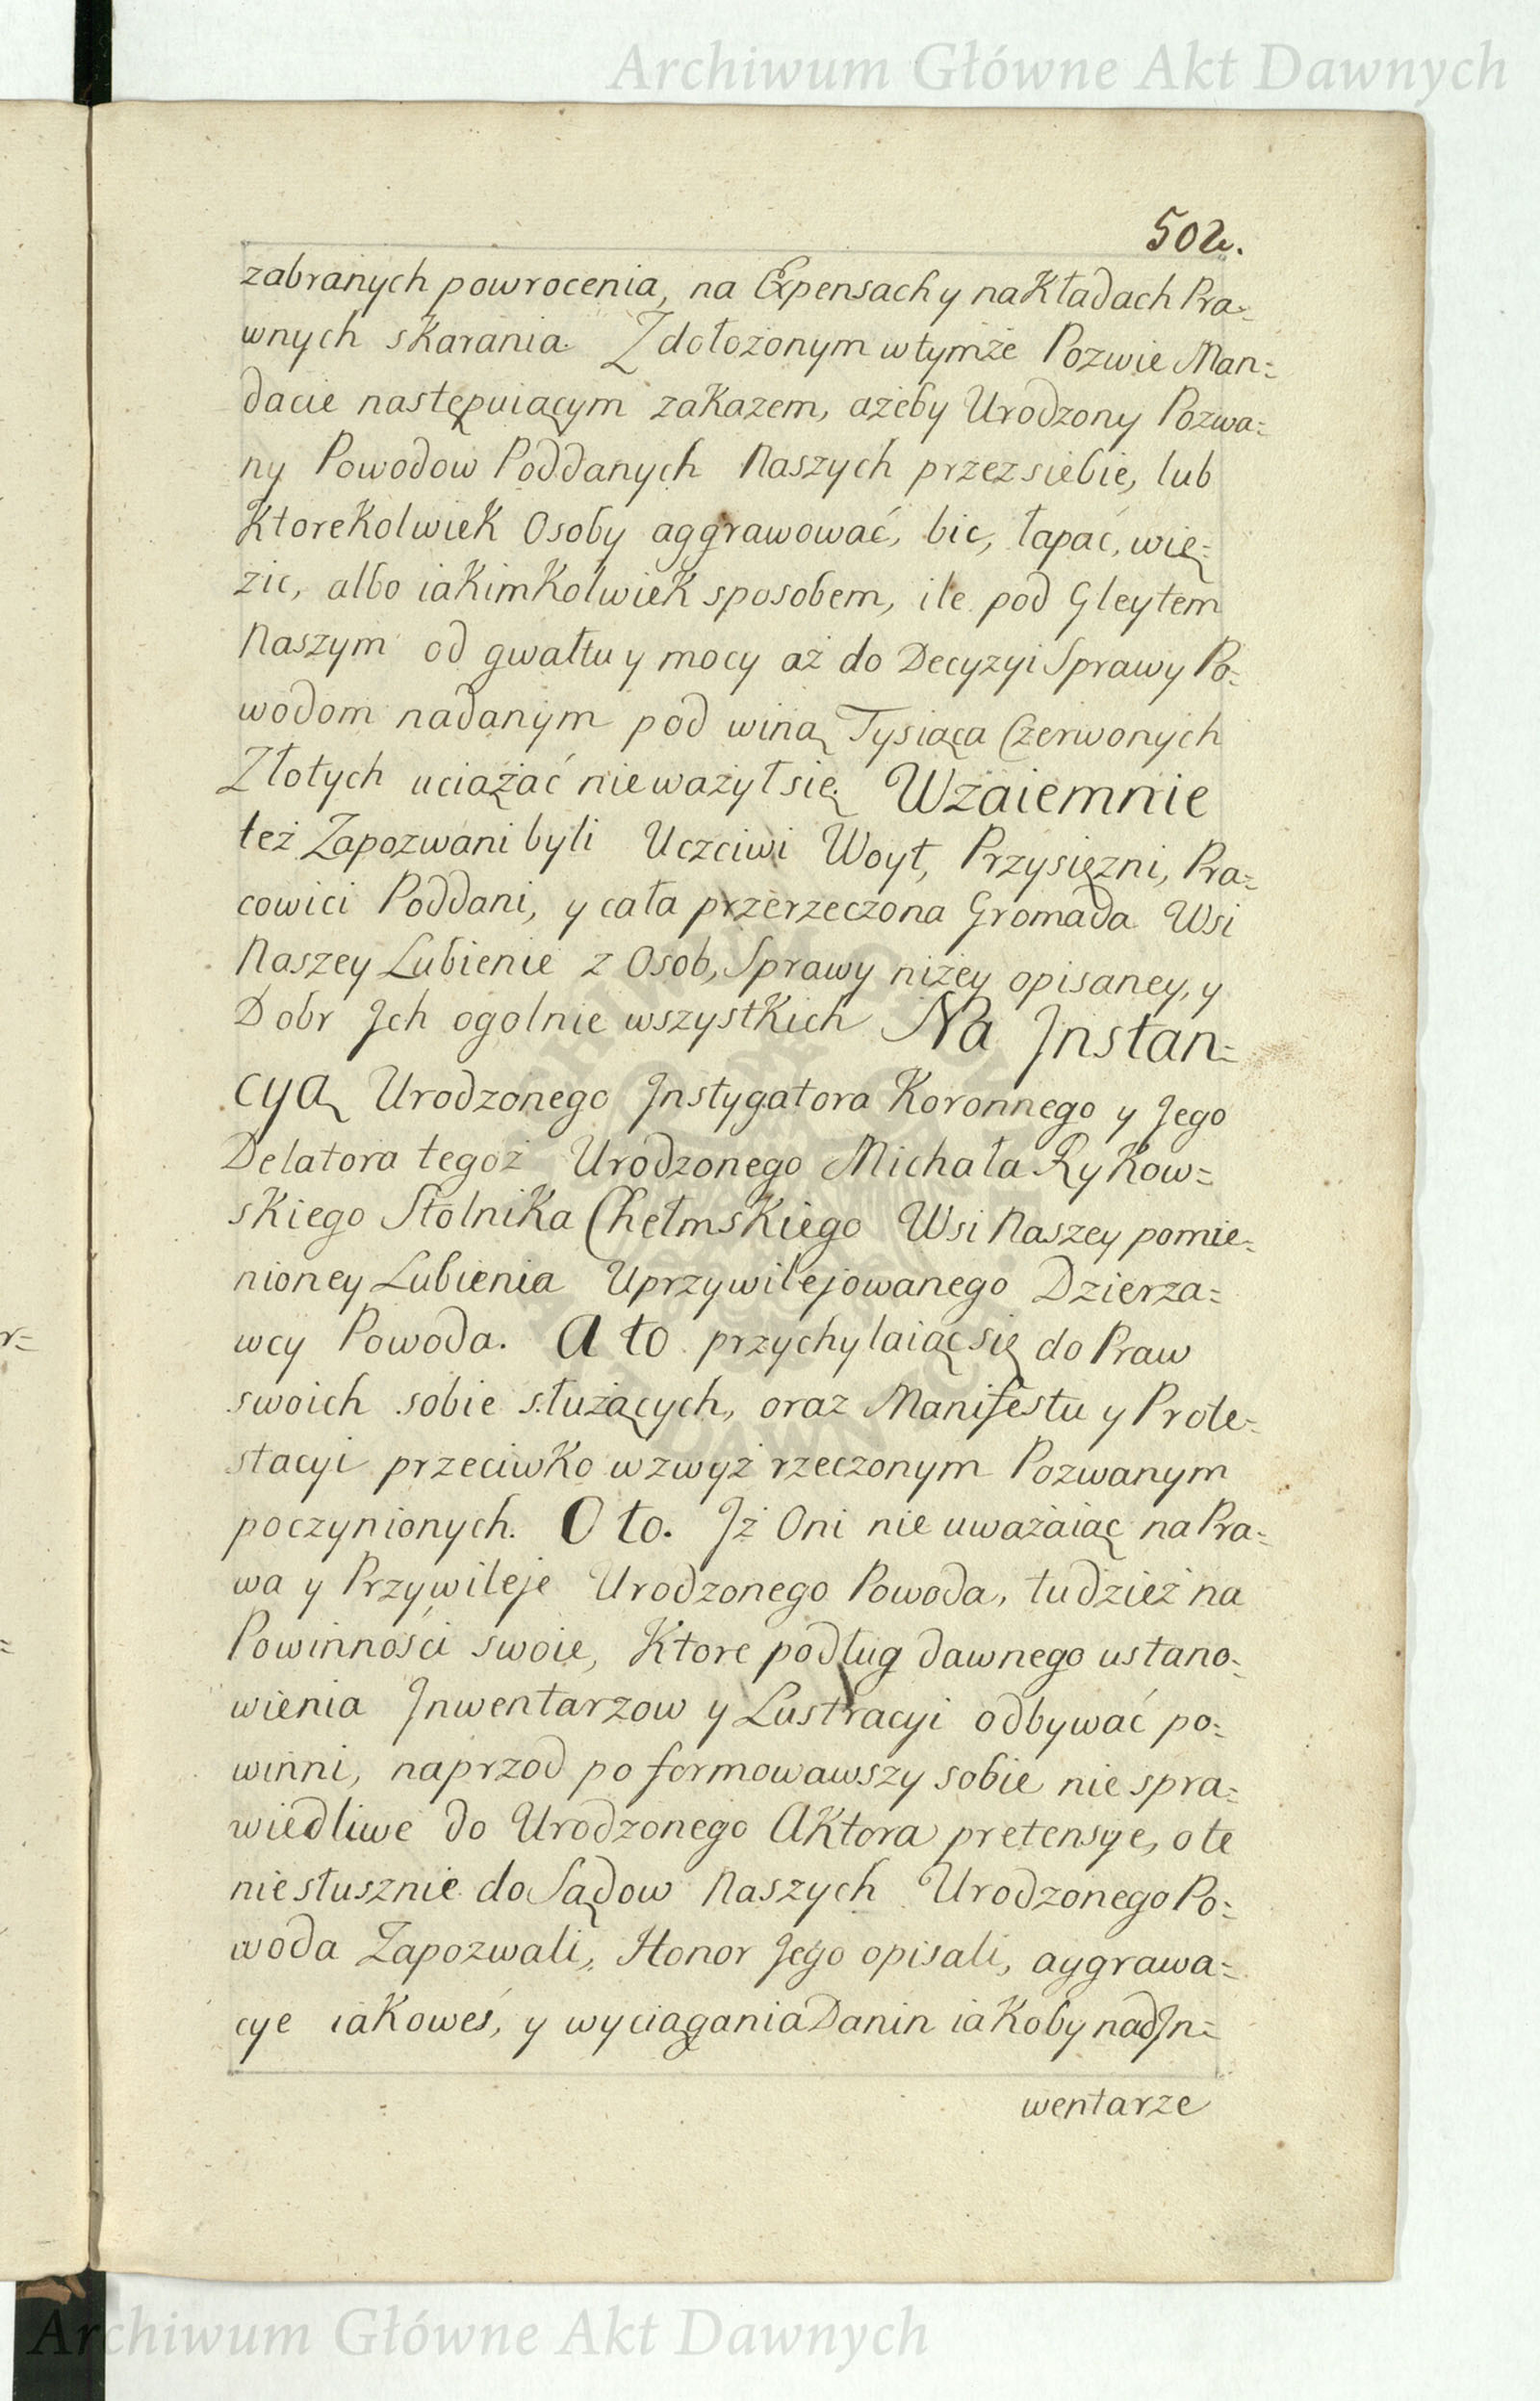 Archiwum Główne Akt Dawnych
502.
zabranych powrocenia, na Expensach y nakładach Pra=
wnych skarania. Z dołożonym wtymże Pozwie Man=
dacie następuiącym zakazem, ażeby Urodzony Pozwa=
ny Powodow Poddanych Naszych przez siebie, lub
Ktorekolwiek Osoby aggrawować, bic, łapać, wię=
zic, albo iakimkolwiek sposobem, ile pod Gleytem
Naszym od gwałtu y mocy aż do Decyzyi Sprawy Po=
wodom nadanym pod winą Tysiąca Czerwonych
Złotych uciążać nieważył się. Wzaiemnie
też Zapozwani byli Uczciwi Woyt, Przysiężni, Pra=
cowici Poddani, y cała przerzeczona Gromada Wsi
Naszey Lubienie z Osob, Sprawy niżey opisaney, y
Dobr Jch ogolnie wszystkich Na Jnstan=
cyą Urodzonego Jnstygatora Koronnego y Jego
Delatora tegoż Urodzonego Michała Rykow=
skiego Stolnika Chełmskiego Wsi Naszey pomie=
nioney Lubienia Uprzywilejowanego Dzierza=
wcy Powoda. A to przychylaiąc się do Praw
swoich sobie służących, oraz Manifestu y Prote=
stacyi przeciwko wzwyż rzeczonym Pozwanym
poczynionych. O to. Jż Oni nie uważaiąc na Pra=
wa y Przywileje Urodzonego Powoda, tudzież na
Powinności swoie, Ktore podług dawnego ustano=
wienia Jnwentarzow y Lustracyi odbywać po=
winni, naprzod poformowawszy sobie nie spra=
wiedliwe do Urodzonego Aktora pretensye, o te
niesłusznie do Sądow Naszych Urodzonego Po=
woda Zapozwali, Honor Jego opisali, aggrawa=
cye iakoweś, y wyciągania Danin iakoby nad Jn=
wentarze
Archiwum Główne Akt Dawnych